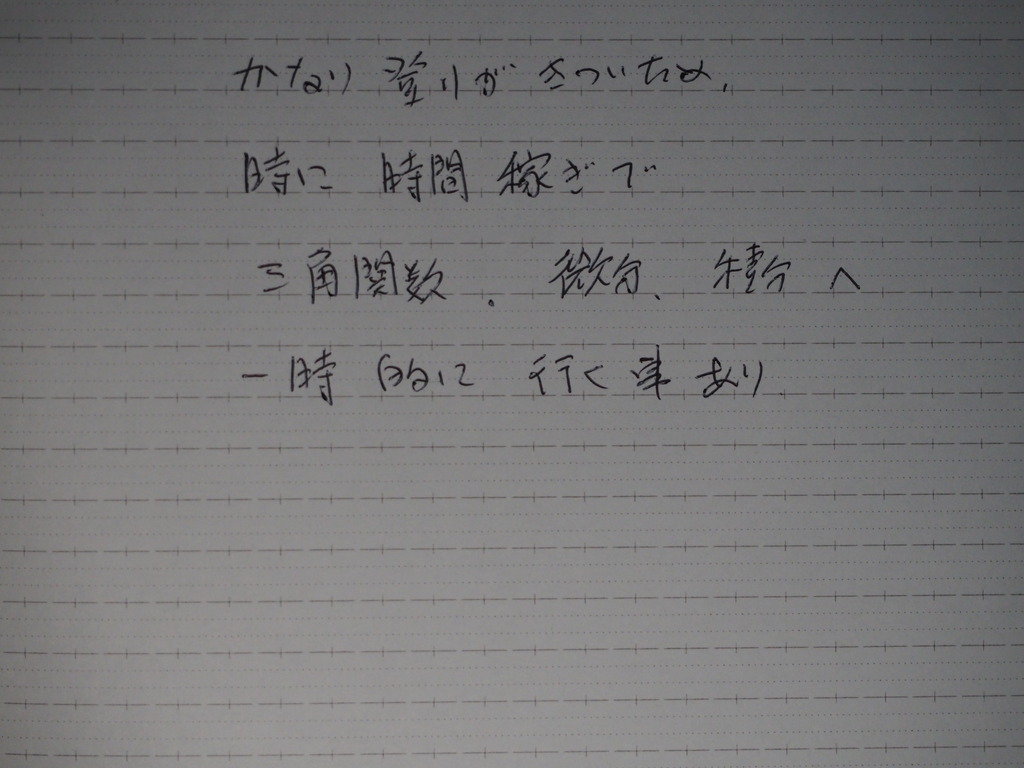 かなり登りがきついため、
時に時間稼ぎで
三角関数、微分、積分へ
一時的に行く事あり